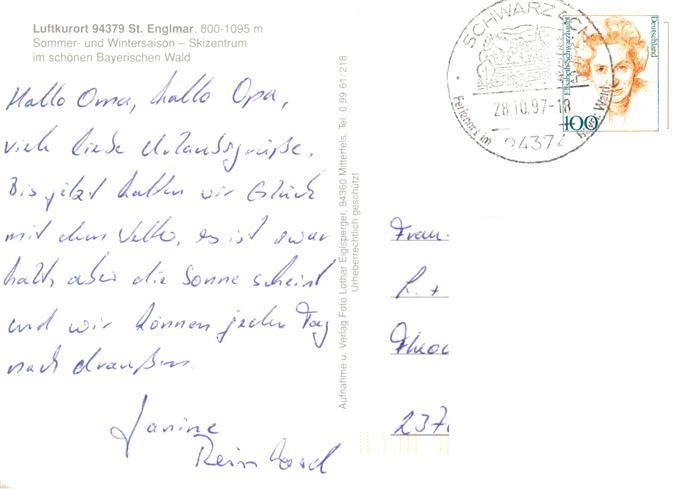 Luftkurort 94379 St. Englmar, 800-1095 m
Sommer- und Wintersaison – Skizentrum
im schönen Bayerischen Wald
Hallo Oma, hallo Opa,
viele liebe Urlaubsgrüße.
Bis jetzt hatten wir Glück
mit dem Wetter, es ist zwar
kalt, aber die Sonne scheint
und wir können jeden Tag
nach draußen.
Janine
Reinhard
Aufnahme u. Verlag Foto Lothar Eiglsperger, 94360 Mitterfels, Tel. 0 99 61/218
Urheberrechtlich geschützt
SCHWARZACH
28.10.97-18
94374
Ferienort im Bayer. Wald
Deutschland
Elisabeth Schwarzhaupt
100
Frau
R. +
Theo
237